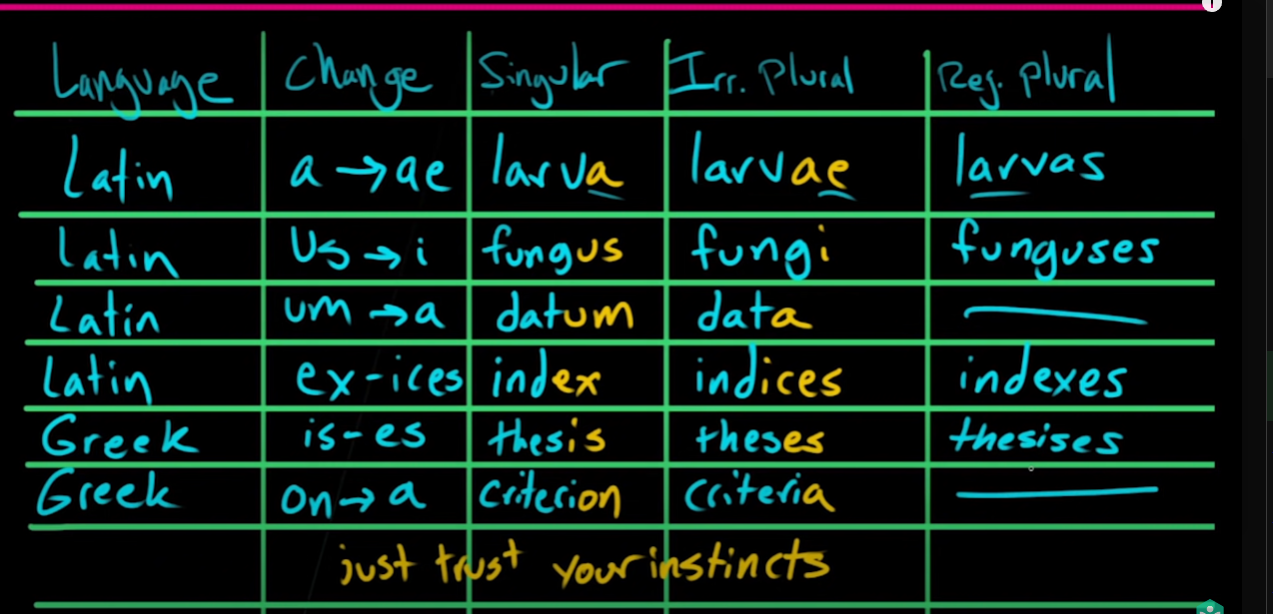 Language Change Singular Irr. Plural Reg. plural
Latin a→ae larva larvae larvas
Latin us→i fungus fungi funguses
Latin um→a datum data
Latin ex-ices index indices indexes
Greek is-es thesis theses thesises
Greek on→a criterion criteria
just trust your instincts